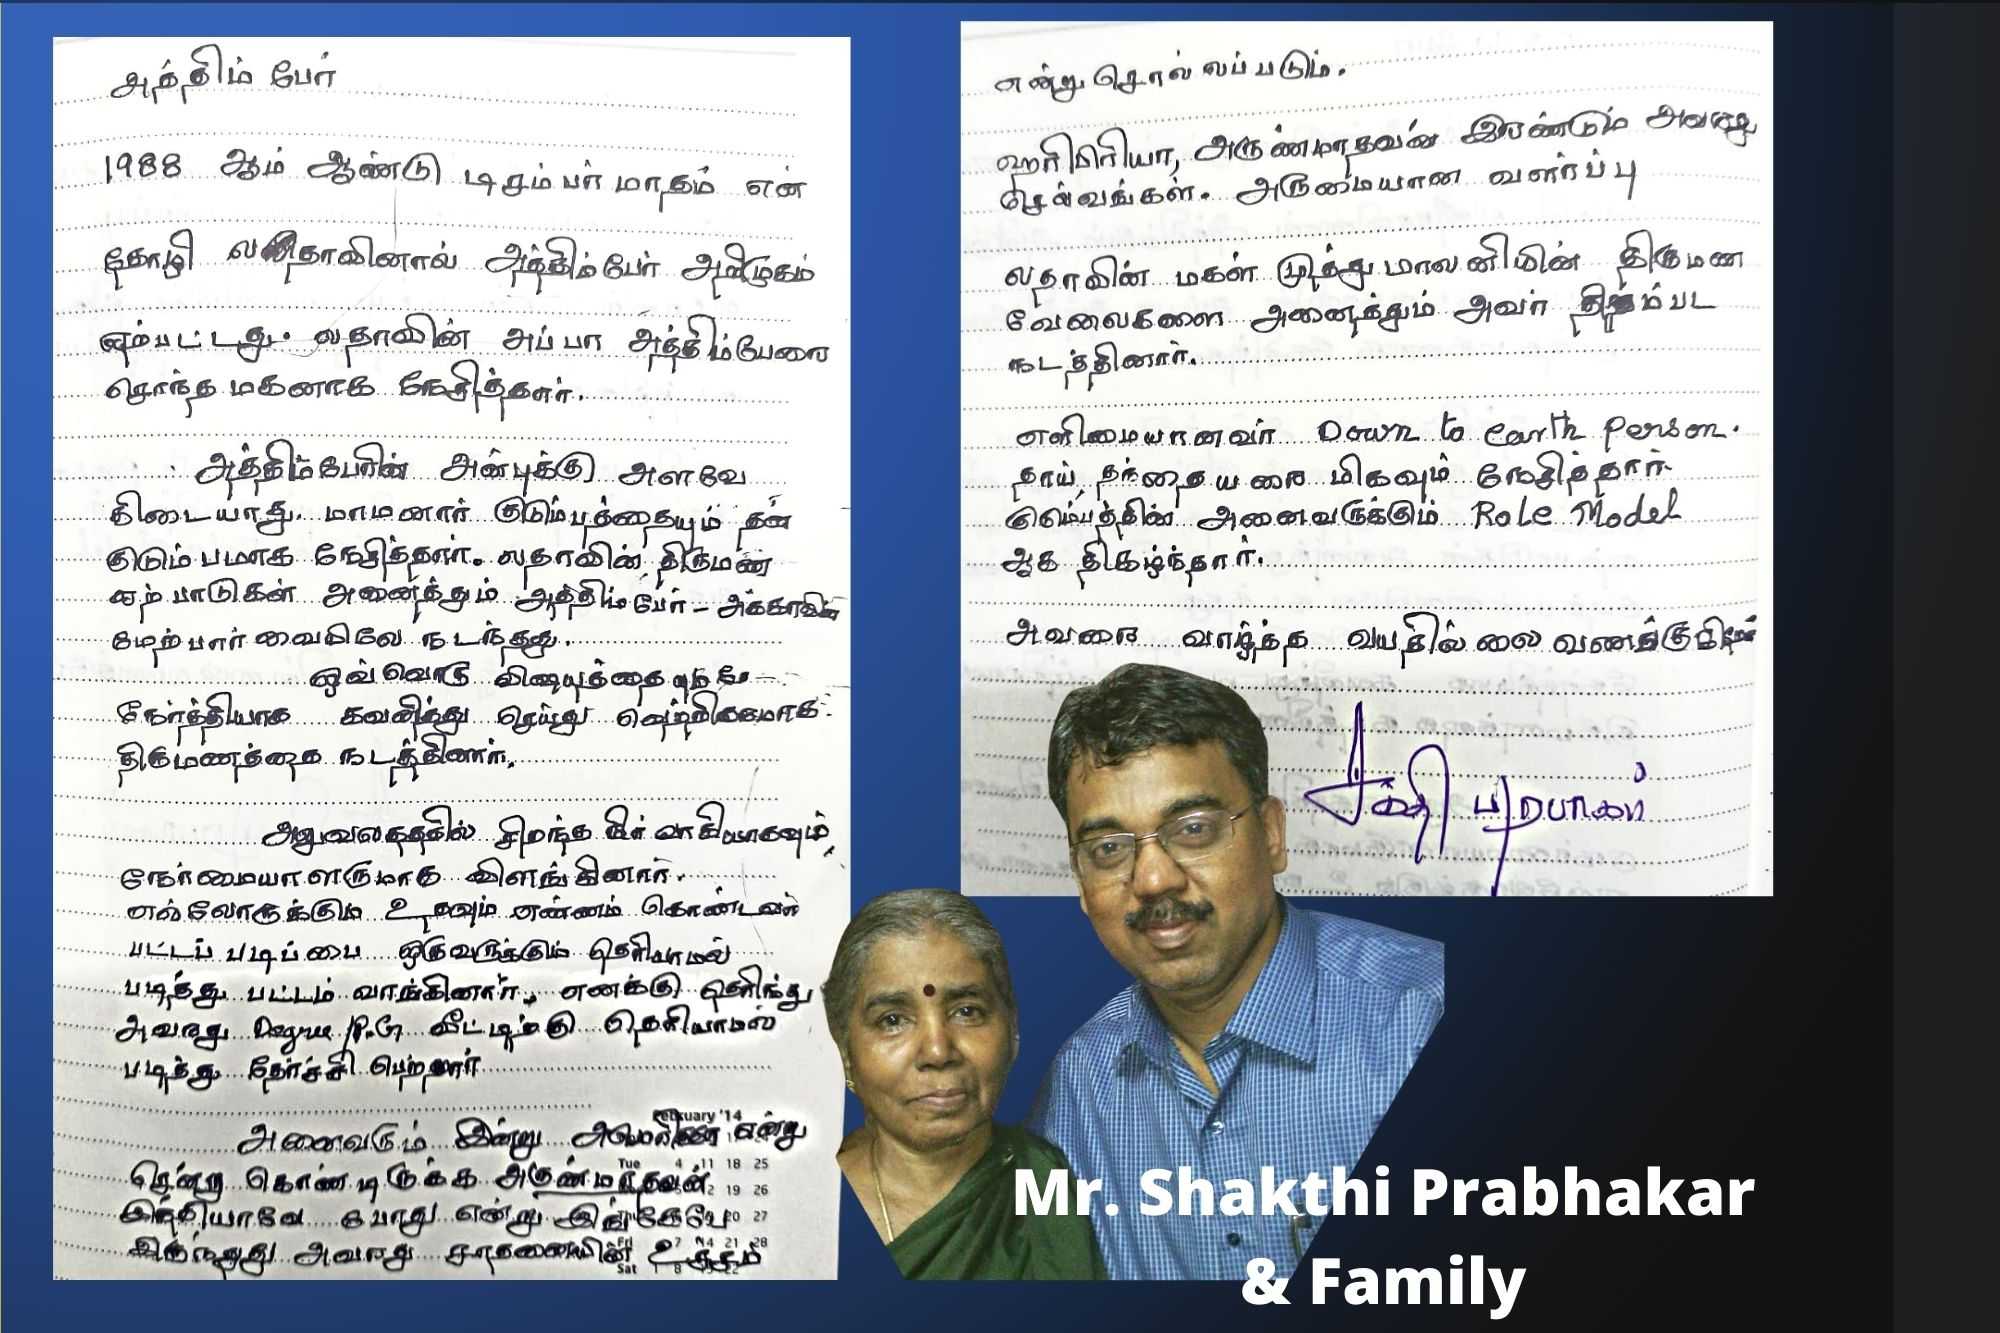 அத்திம் பேர்
1988 ஆம் ஆண்டு டிசம்பர் மாதம் என்
தோழி லதாவினால் அத்திம்பேர் அறிமுகம்
ஏற்பட்டது. லதாவின் அப்பா அத்திம்பேரை
சொந்த மகனாக நேசித்தார்.
அத்திம்பேரின் அன்புக்கு அளவே
கிடையாது. மாமனார் குடும்பத்தையும் தன்
குடும்பமாக நேசித்தார். லதாவின் திருமண
ஏற்பாடுகள் அனைத்தும் அத்திம்பேர் – அக்காவின்
மேற்பார்வையிலே நடந்தது.
ஒவ்வொரு விஷயத்தையுமே
நேர்த்தியாக கவனித்து செய்து வெற்றிகரமாக
திருமணத்தை நடத்தினார்.
அலுவலகத்தில் சிறந்த நிர்வாகியாகவும்,
நேர்மையாளருமாக விளங்கினார்.
எல்லோருக்கும் உதவும் எண்ணம் கொண்டவர்
பட்டப் படிப்பை ஒருவருக்கும் தெரியாமல்
படித்து பட்டம் வாங்கினார். எனக்கு தெரிந்து
அவரது Degree/P.G வீட்டிற்கு தெரியாமல்
படித்து தேர்ச்சி பெற்றார்
February '14
அனைவரும் இன்று அமெரிக்கா என்று
சென்று கொண்டிருக்க அருண்மாதவன்
Tue 4 11 18 25
12 19 26
இந்தியாவே போதும் என்று இங்கேயே
20 27
இருந்தது அவரது சாதனையின் உச்சம்
Fri 7 14 21 28
Sat 1 8 15 22
என்று சொல்லப்படும்.
ஹரிப்ரியா, அருண்மாதவன் இரண்டும் அவரது
செல்வங்கள். அருமையான வளர்ப்பு
லதாவின் மகள் முத்துமாலனியின் திருமண
வேலைகளை அனைத்தும் அவர் திறம்பட
நடத்தினார்.
எளிமையானவர் Down to earth person.
தாய் தந்தையரை மிகவும் நேசித்தார்.
குடும்பத்தின் அனைவருக்கும் Role Model
ஆக திகழ்ந்தார்.
அவரை வாழ்த்த வயதில்லை வணங்குகிறேன்
சக்தி பிரபாகர்
Mr. Shakthi Prabhakar
& Family